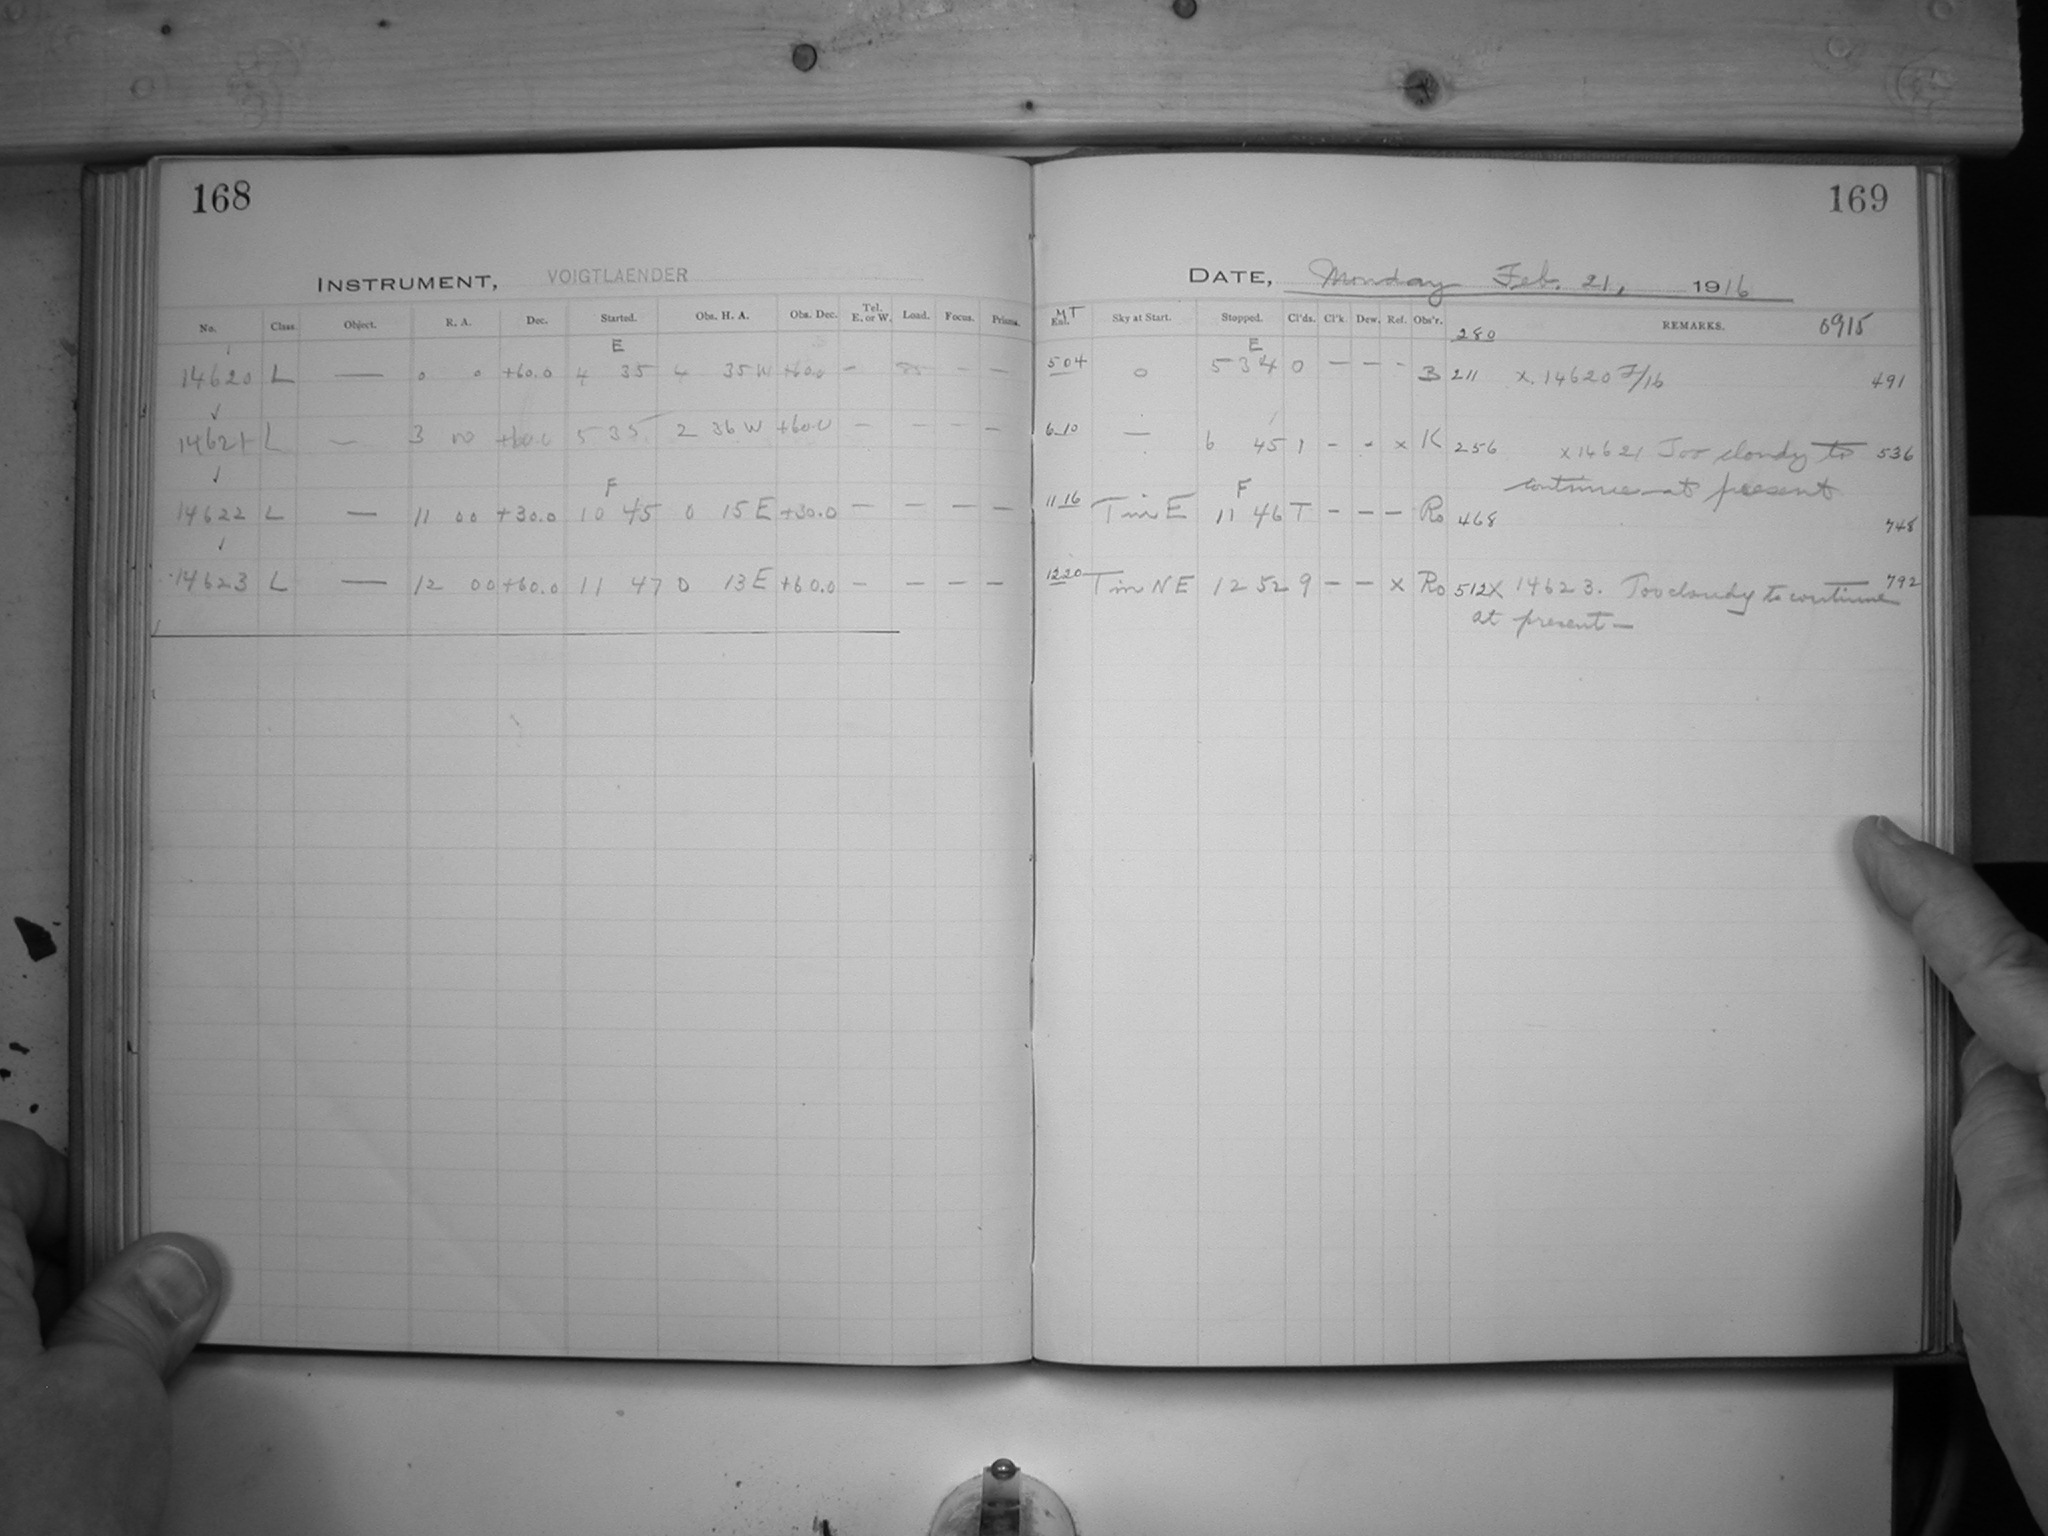 168
169
INSTRUMENT, VOIGTLAENDER
DATE, Monday Feb. 21, 1916
No. Class. Object. R. A. Dec. Started. Obs. H. A. Obs. Dec. Tel. E. or W. Load. Focus. Prisms.
MT Sky at Start. Stopped. Cl'ds. Cl'k. Dew. Ref. Obs'r. 280 REMARKS. 0915
E
E
14620 L — 0 0 +60.0 4 35 4 35 W +60.0 — — —
504 0 5 34 0 — — - B 211 x. 14620 F/16 491
14621 L — 3 00 +60.0 5 35 2 36 W +60.0 — — — —
610 — 6 45 1 - - x K 256 x 14621 Too cloudy to 536
continue at present
F
F
14622 L — 11 00 +30.0 10 45 0 15 E +30.0 — — — —
1116 T in E 11 46 T - — — Ro 468 748
14623 L — 12 00 +60.0 11 47 0 13 E +60.0 — — — —
1220 T in NE 12 52 9 — — x Ro 512 X 14623. Too cloudy to continue 792
at present —